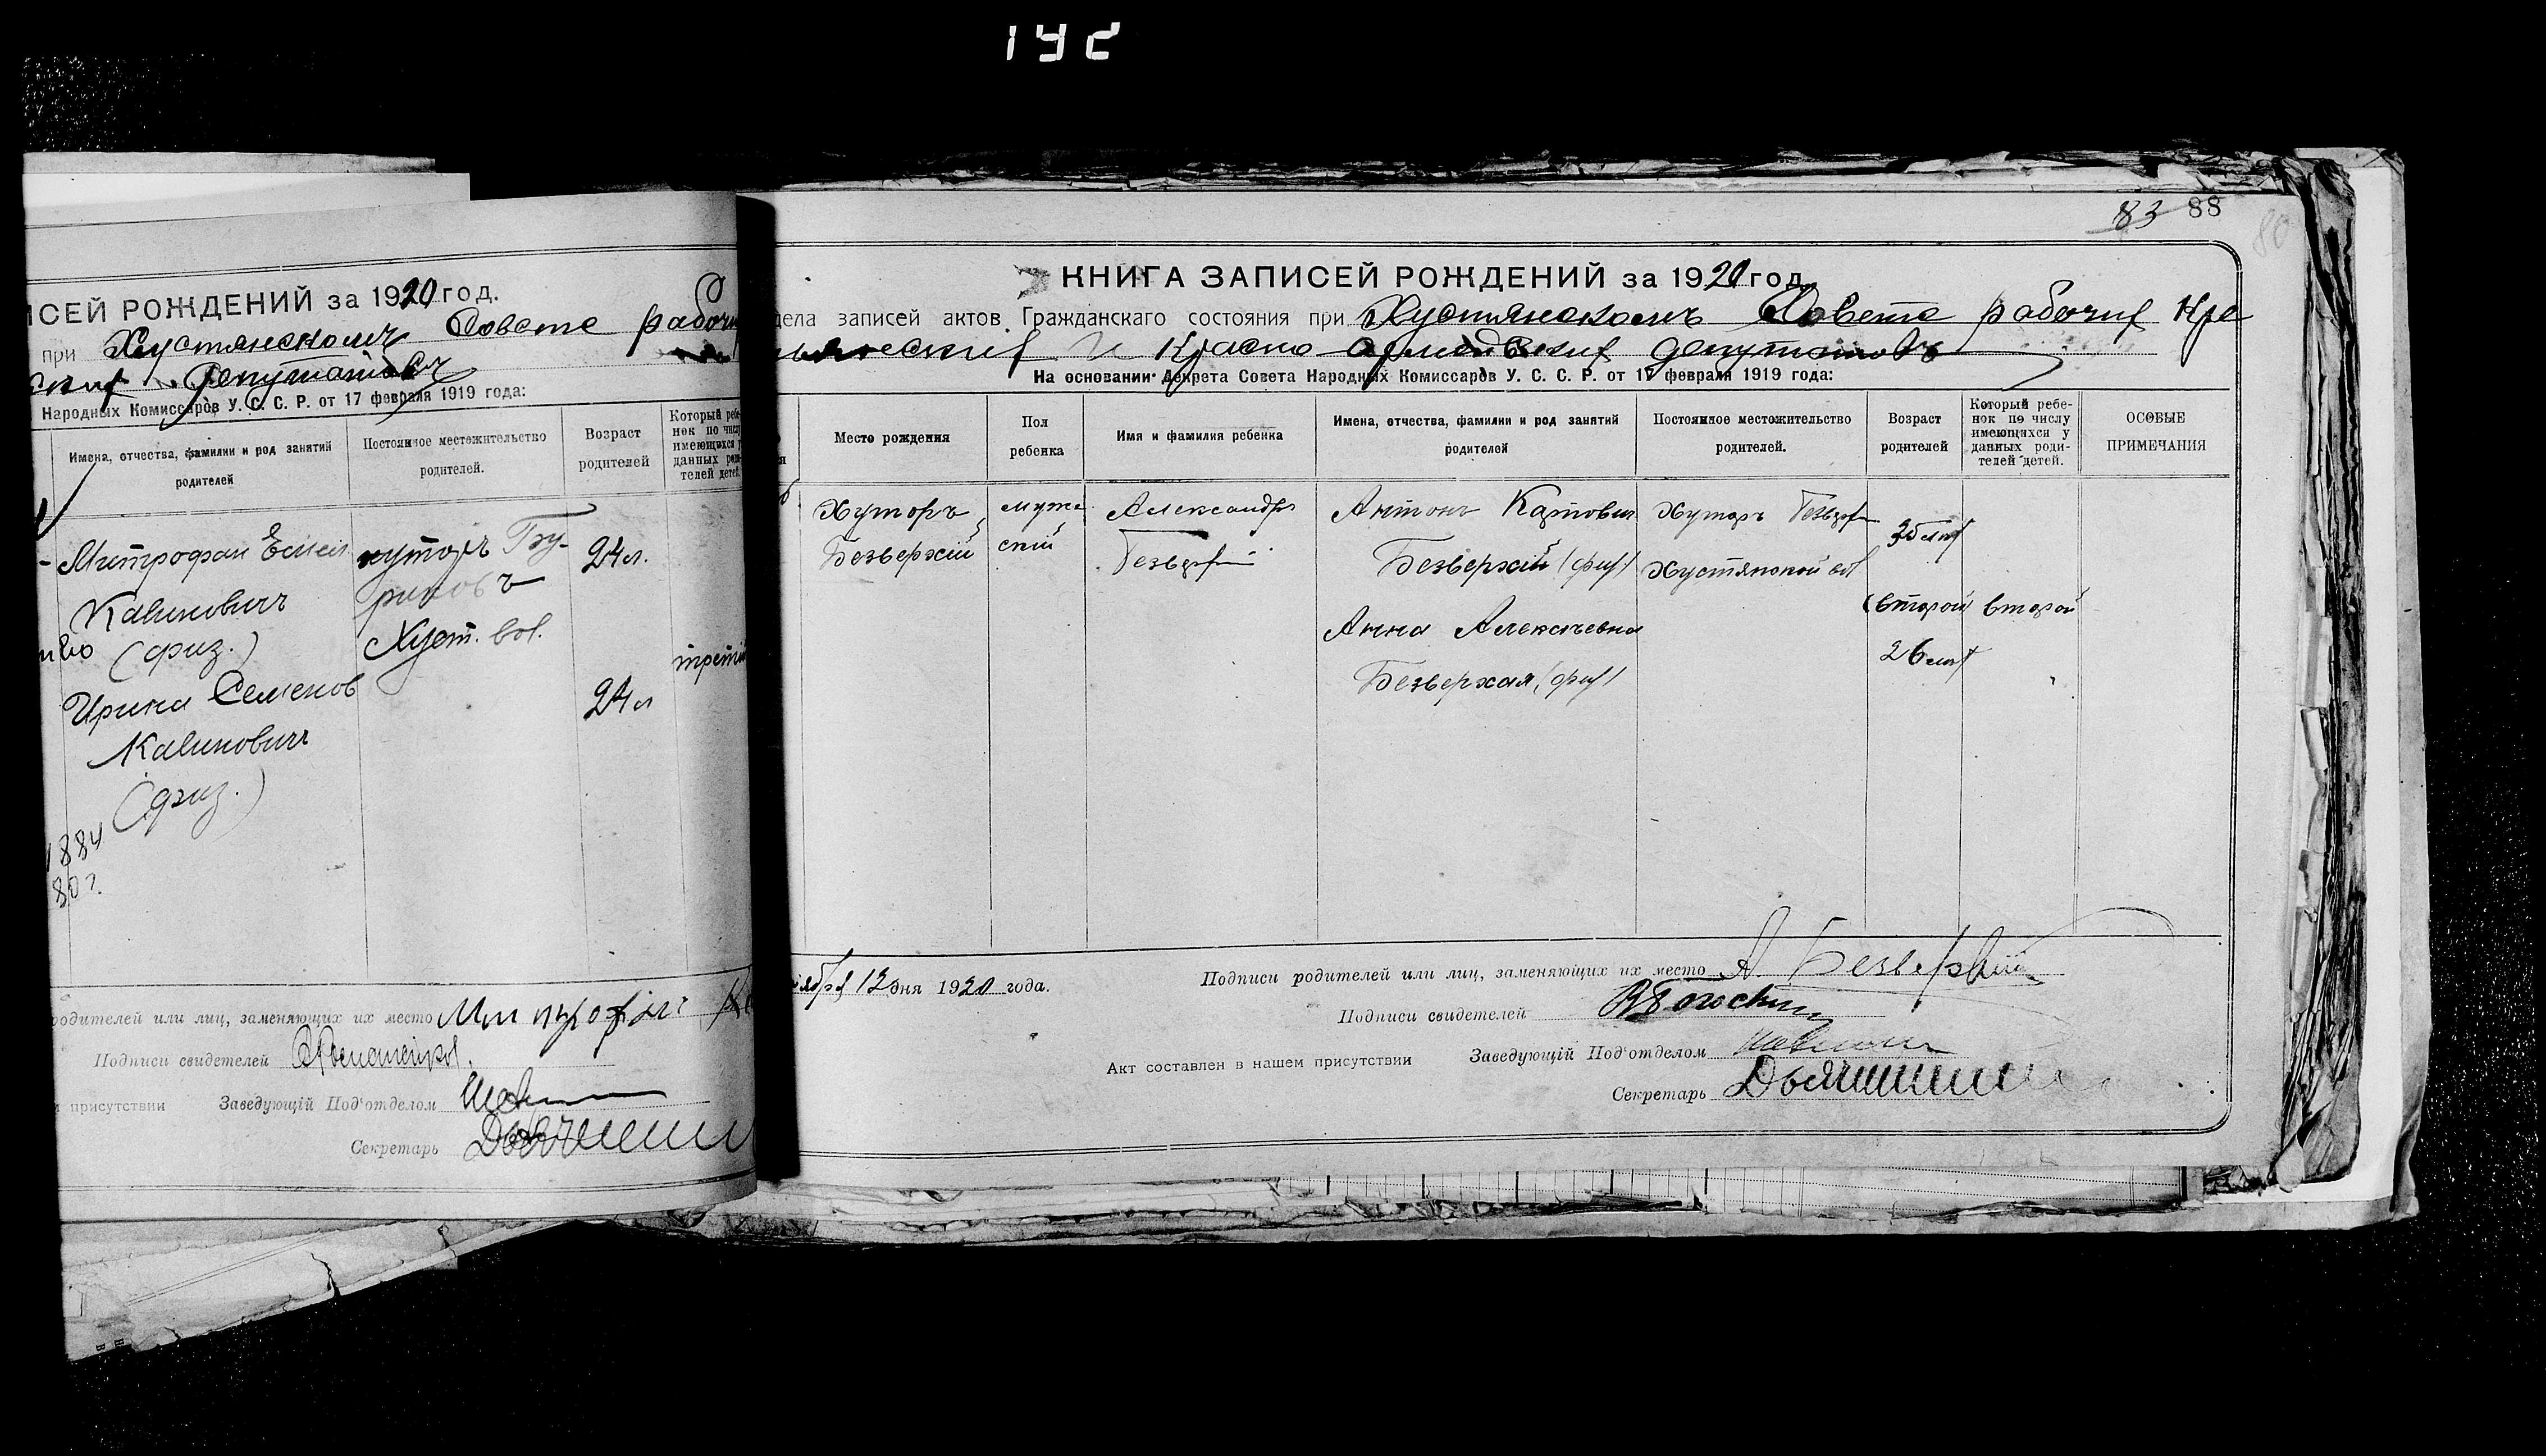 142
ИСЕЙ РОЖДЕНИЙ за 1920 год.
при Хустянскомъ Совете рабочи
ских депутатовъ
Народных Комиссаров У. С. С. Р. от 17 февраля 1919 года:
Имена, отчества, фамилии и род занятий родителей
Постоянное местожительство родителей.
Возраст родителей
Который ребе-
нок по числу
имеющихся у
данных роди-
телей детей.
Митрофан
Калинович
(физ.)
Ирина Семенов
Калинович
(физ.)
хуторъ
Хуст. вол.
24 л.
24 л
третий
1884
80 г.
родителей или лиц, заменяющих их место Митрофан
Подписи свидетелей
присутствии Заведующій Под'отделом
Секретарь
83 88
80
КНИГА ЗАПИСЕЙ РОЖДЕНИЙ за 1920 год.
дела записей актов Гражданскаго состояния при Хустянскомъ Совете рабочих Кре
стьянских и Красно-армейских депутатовъ
На основании Декрета Совета Народных Комиссаров У. С. С. Р. от 17 февраля 1919 года:
Место рождения
Пол ребенка
Имя и фамилия ребенка
Имена, отчества, фамилии и род занятий родителей
Постоянное местожительство родителей.
Возраст родителей
Который ребе-
нок по числу
имеющихся у
данных роди-
телей детей.
ОСОБЫЕ ПРИМЕЧАНИЯ
Хуторъ
Безверхій
муж
ской
Александръ
Безверхий
Антонъ
Безверхий (физ)
Анна Алексеевна
Безверхая (физ)
Хуторъ Безверх
Хустянской вол
35 лет
(второй)
26 лет
второй
ября 12 дня 1920 года.
Подписи родителей или лиц, заменяющих их место А. Безверхий
Подписи свидетелей
Акт составлен в нашем присутствии Заведующій Под'отделом
Секретарь